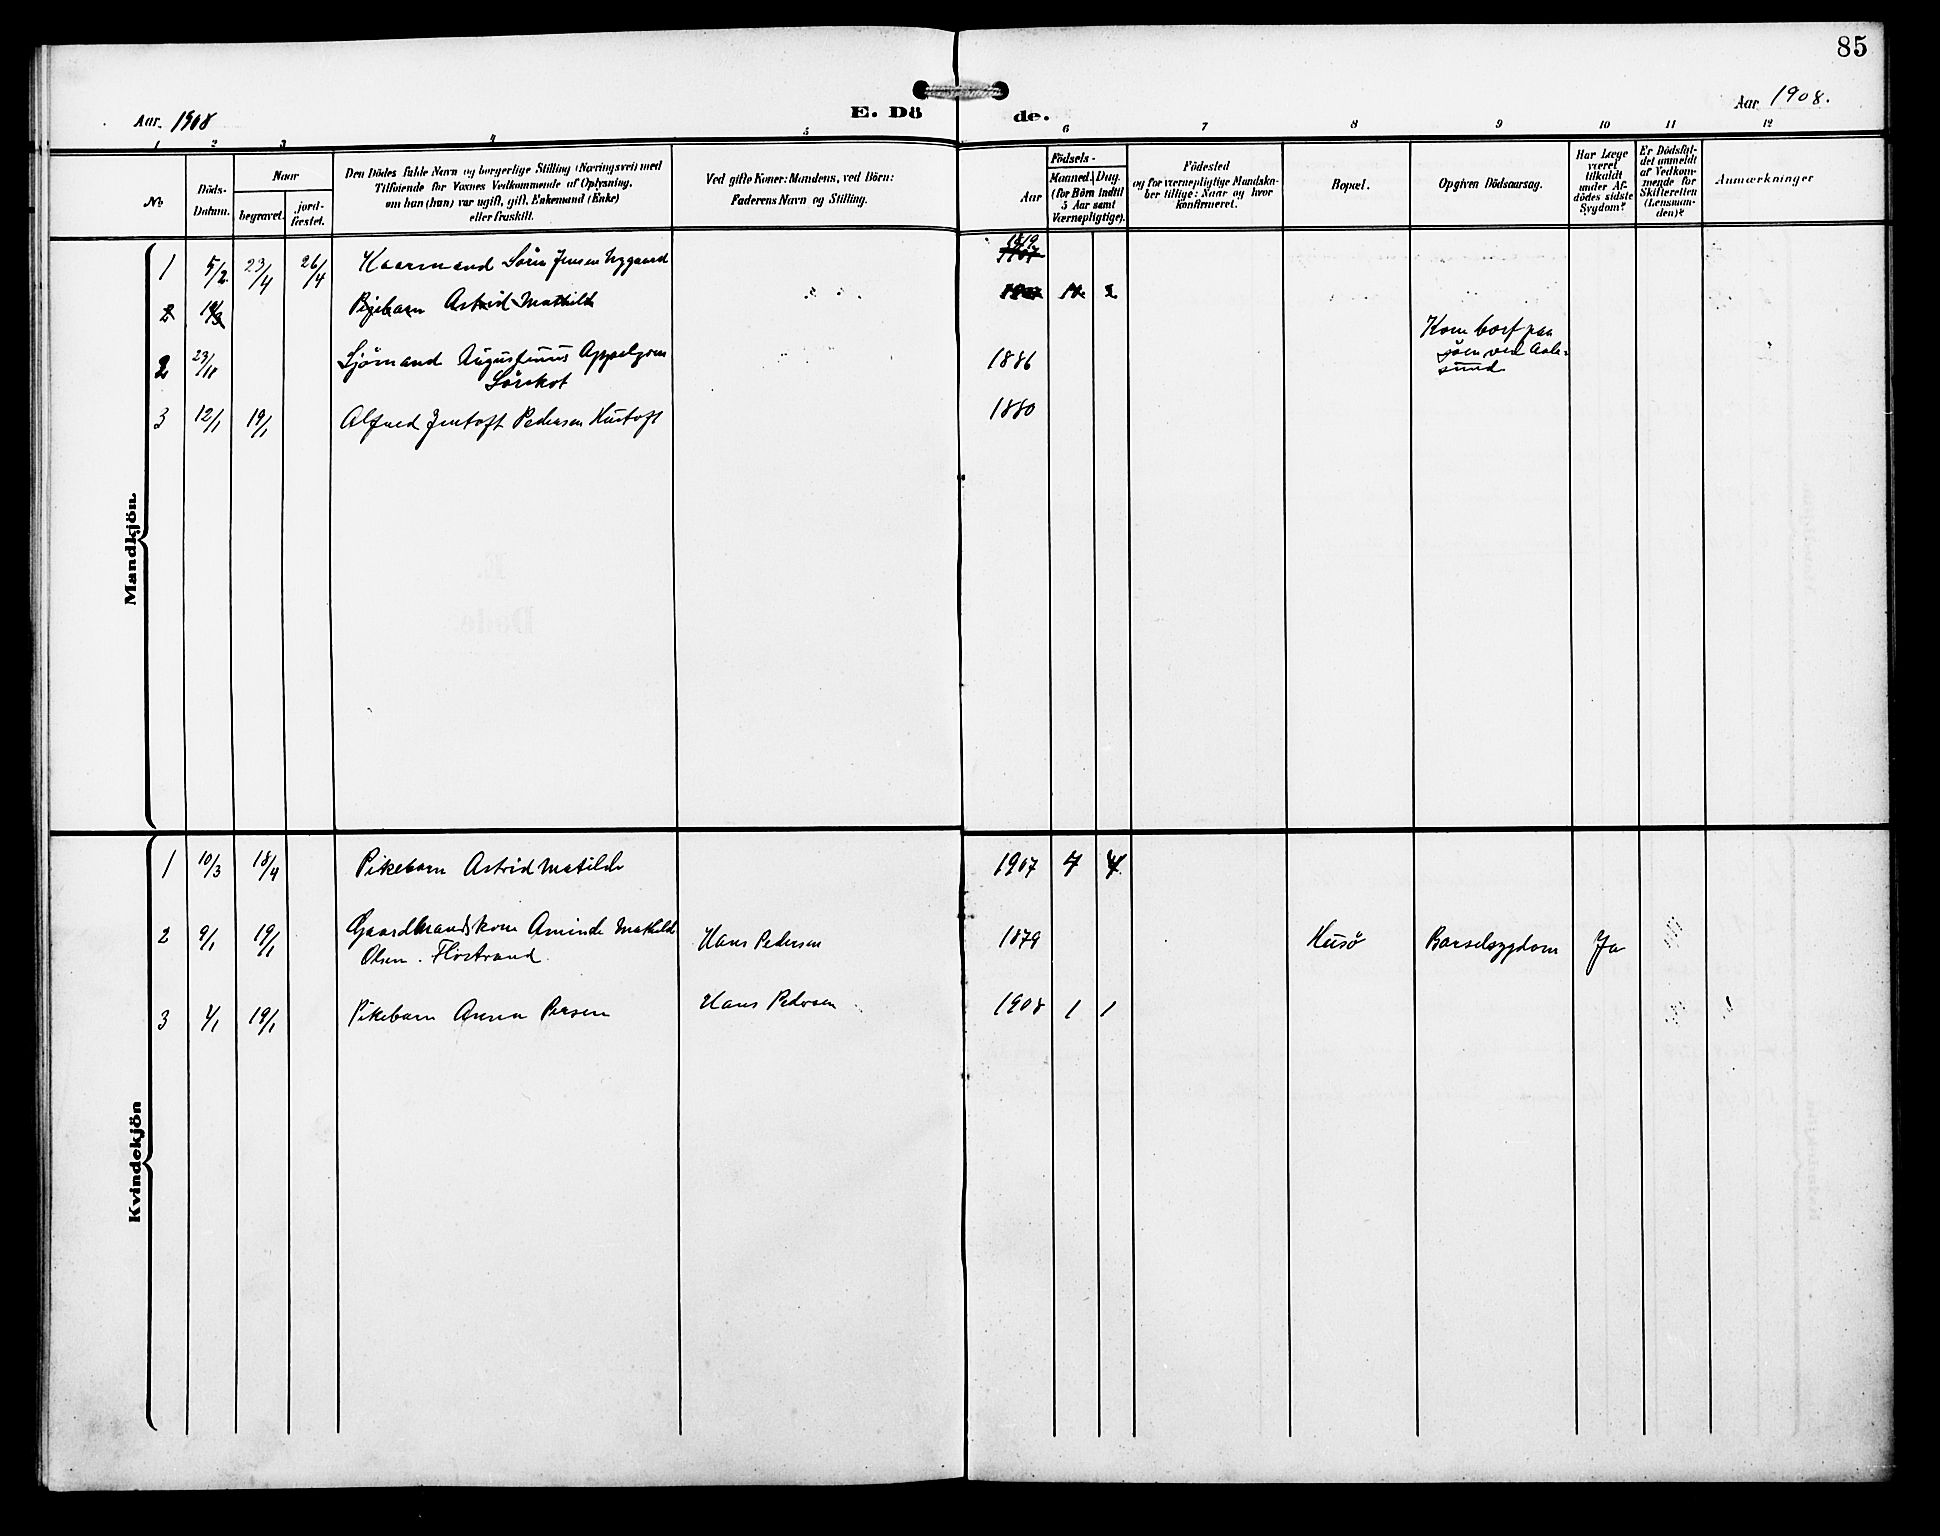 85
Aar 1908
E. Döde.
Aar 1908.
1 2 3 4 5 6 7 8 9 10 11 12
No
Döds-
Datum.
Naar
begravet.
jord-
fæstet.
Den Dödes fulde Navn og borgerlige Stilling (Næringsvei) med
Tilföiende for Voxnes Vedkommende af Oplysning,
om han (hun) var ugift, gift, Enkemand (Enke)
eller fraskilt.
Ved gifte Koner: Mandens, ved Börn:
Faderens Navn og Stilling.
Födsels-
Aar
Maaned.
Dag.
(for Börn indtil
5 Aar samt
Værnepligtige).
Födested
og for værnepligtige Mandska-
ber tillige: Naar og hvor
konfirmeret.
Bopæl.
Opgiven Dödsaarsag.
Har Læge
været
tilkaldt
under Af-
dödes sidste
Sygdom?
Er Dödsfal-
det anmeldt
af Vedkom-
mende for
Skifteretten
(Lensman-
den)?
Anmærkninger
Mandkjön
1 5/2 23/4 26/4 Kaarmand Sörin Jensen Nygaard 1819
2 10/3 Pigebarn Astrid Mathilde
2 23/11 Sjömand Augustinus Appelgren 1886 Kom bort paa
sjöen ved Aale-
sund
3 12/1 19/1 Alfred Jentoft Pedersen Hustoft 1880
Kvindekjön
1 10/3 18/4 Pikebarn Astrid Matilde 1907 7 4
2 9/1 19/1 Gaardmandskone Aminde Mathilde
Olsen. Flostrand Hans Pedersen 1879 Husö Barselsygdom Ja
3 4/1 19/1 Pikebarn Anna Persen Hans Pedersen 1908 1 1